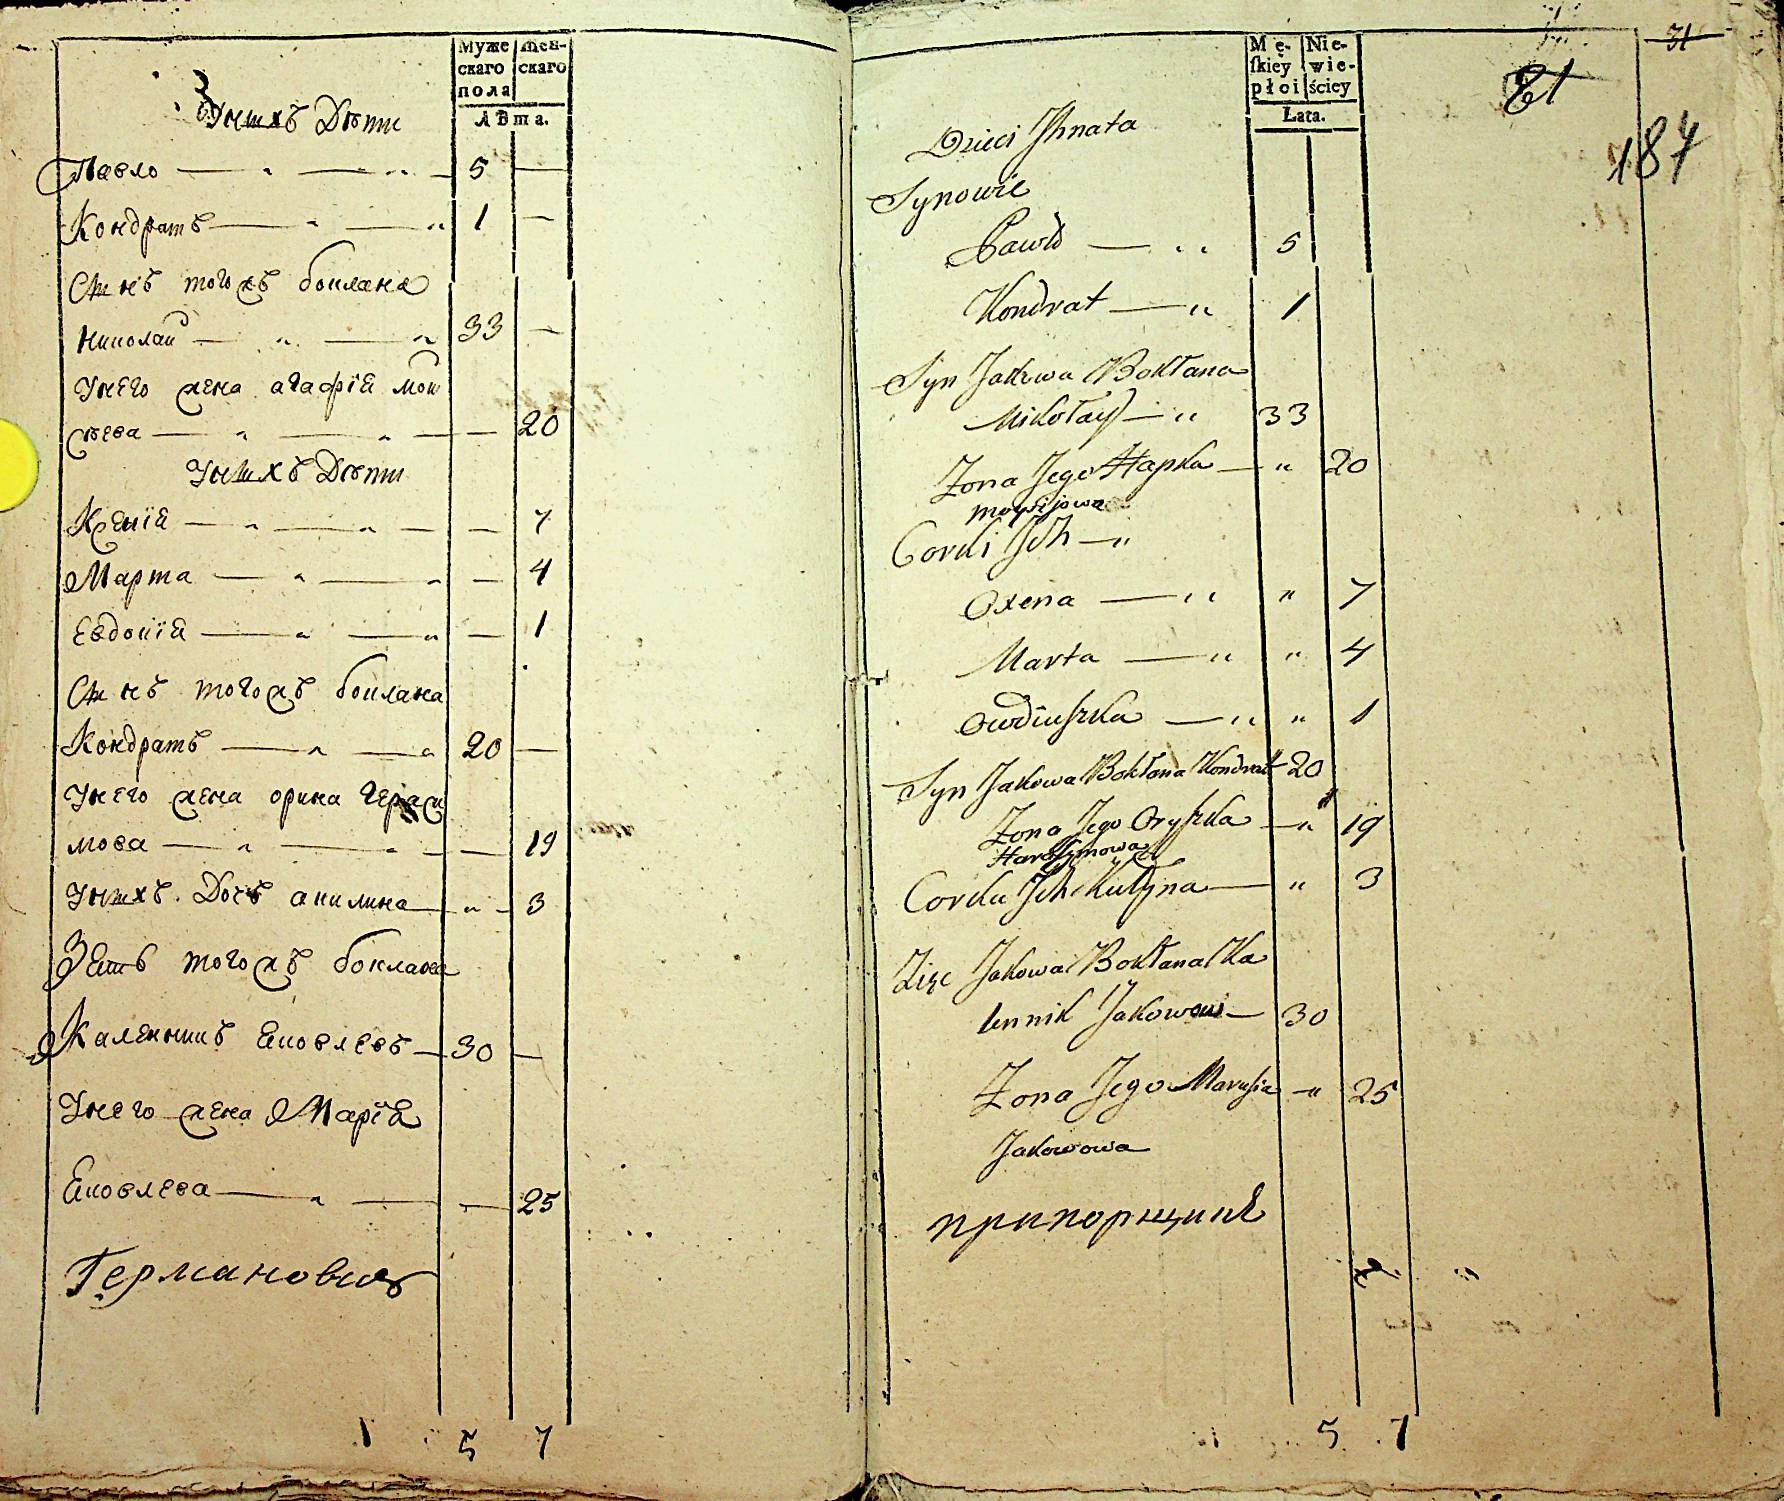 Муже Жен-
скаго скаго
пола
Лѣта.
Унихъ Дѣти
Павло 5 —
Кондратъ 1 —
Сынъ тогожъ боклана
Николай 33 —
Унего жена агафїя мои
сѣева — 20
Унихъ Дѣти
Ксенїя — 7
Марта — 4
Евдокїя — 1
Сынъ тогожъ боклана
Кондратъ 20 —
Унего жена орина Гераси
мова — 19
Унихъ Дочь акилина — 3
Зять тогожъ боклана
Каленникъ Яковлевъ 30 —
Унего жена Марїя
Яковлева — 25
Германовичъ
1 5 7
Mę- Nie-
ſkiey wie-
płci ściey
Lata.
31
81
187
Dzieci Ihnata
Synowie
Pawło 5
Kondrat 1
Syn Jakowa Bokłana
Mikołay 33
Zona Jego Hapka " 20
Moysijowa
Corki Ich
Oxena " 7
Marta " 4
Owdiuszka " 1
Syn Jakowa Bokłana Kondrat 20
Zona Jego Oryszka " 19
Harasymowa
Corka Ich Kulyna " 3
Zięc Jakowa Bokłana Ka
lennik Jakowow 30
Zona Jego Marusia " 25
Jakowowa
прапорщикъ
5 7